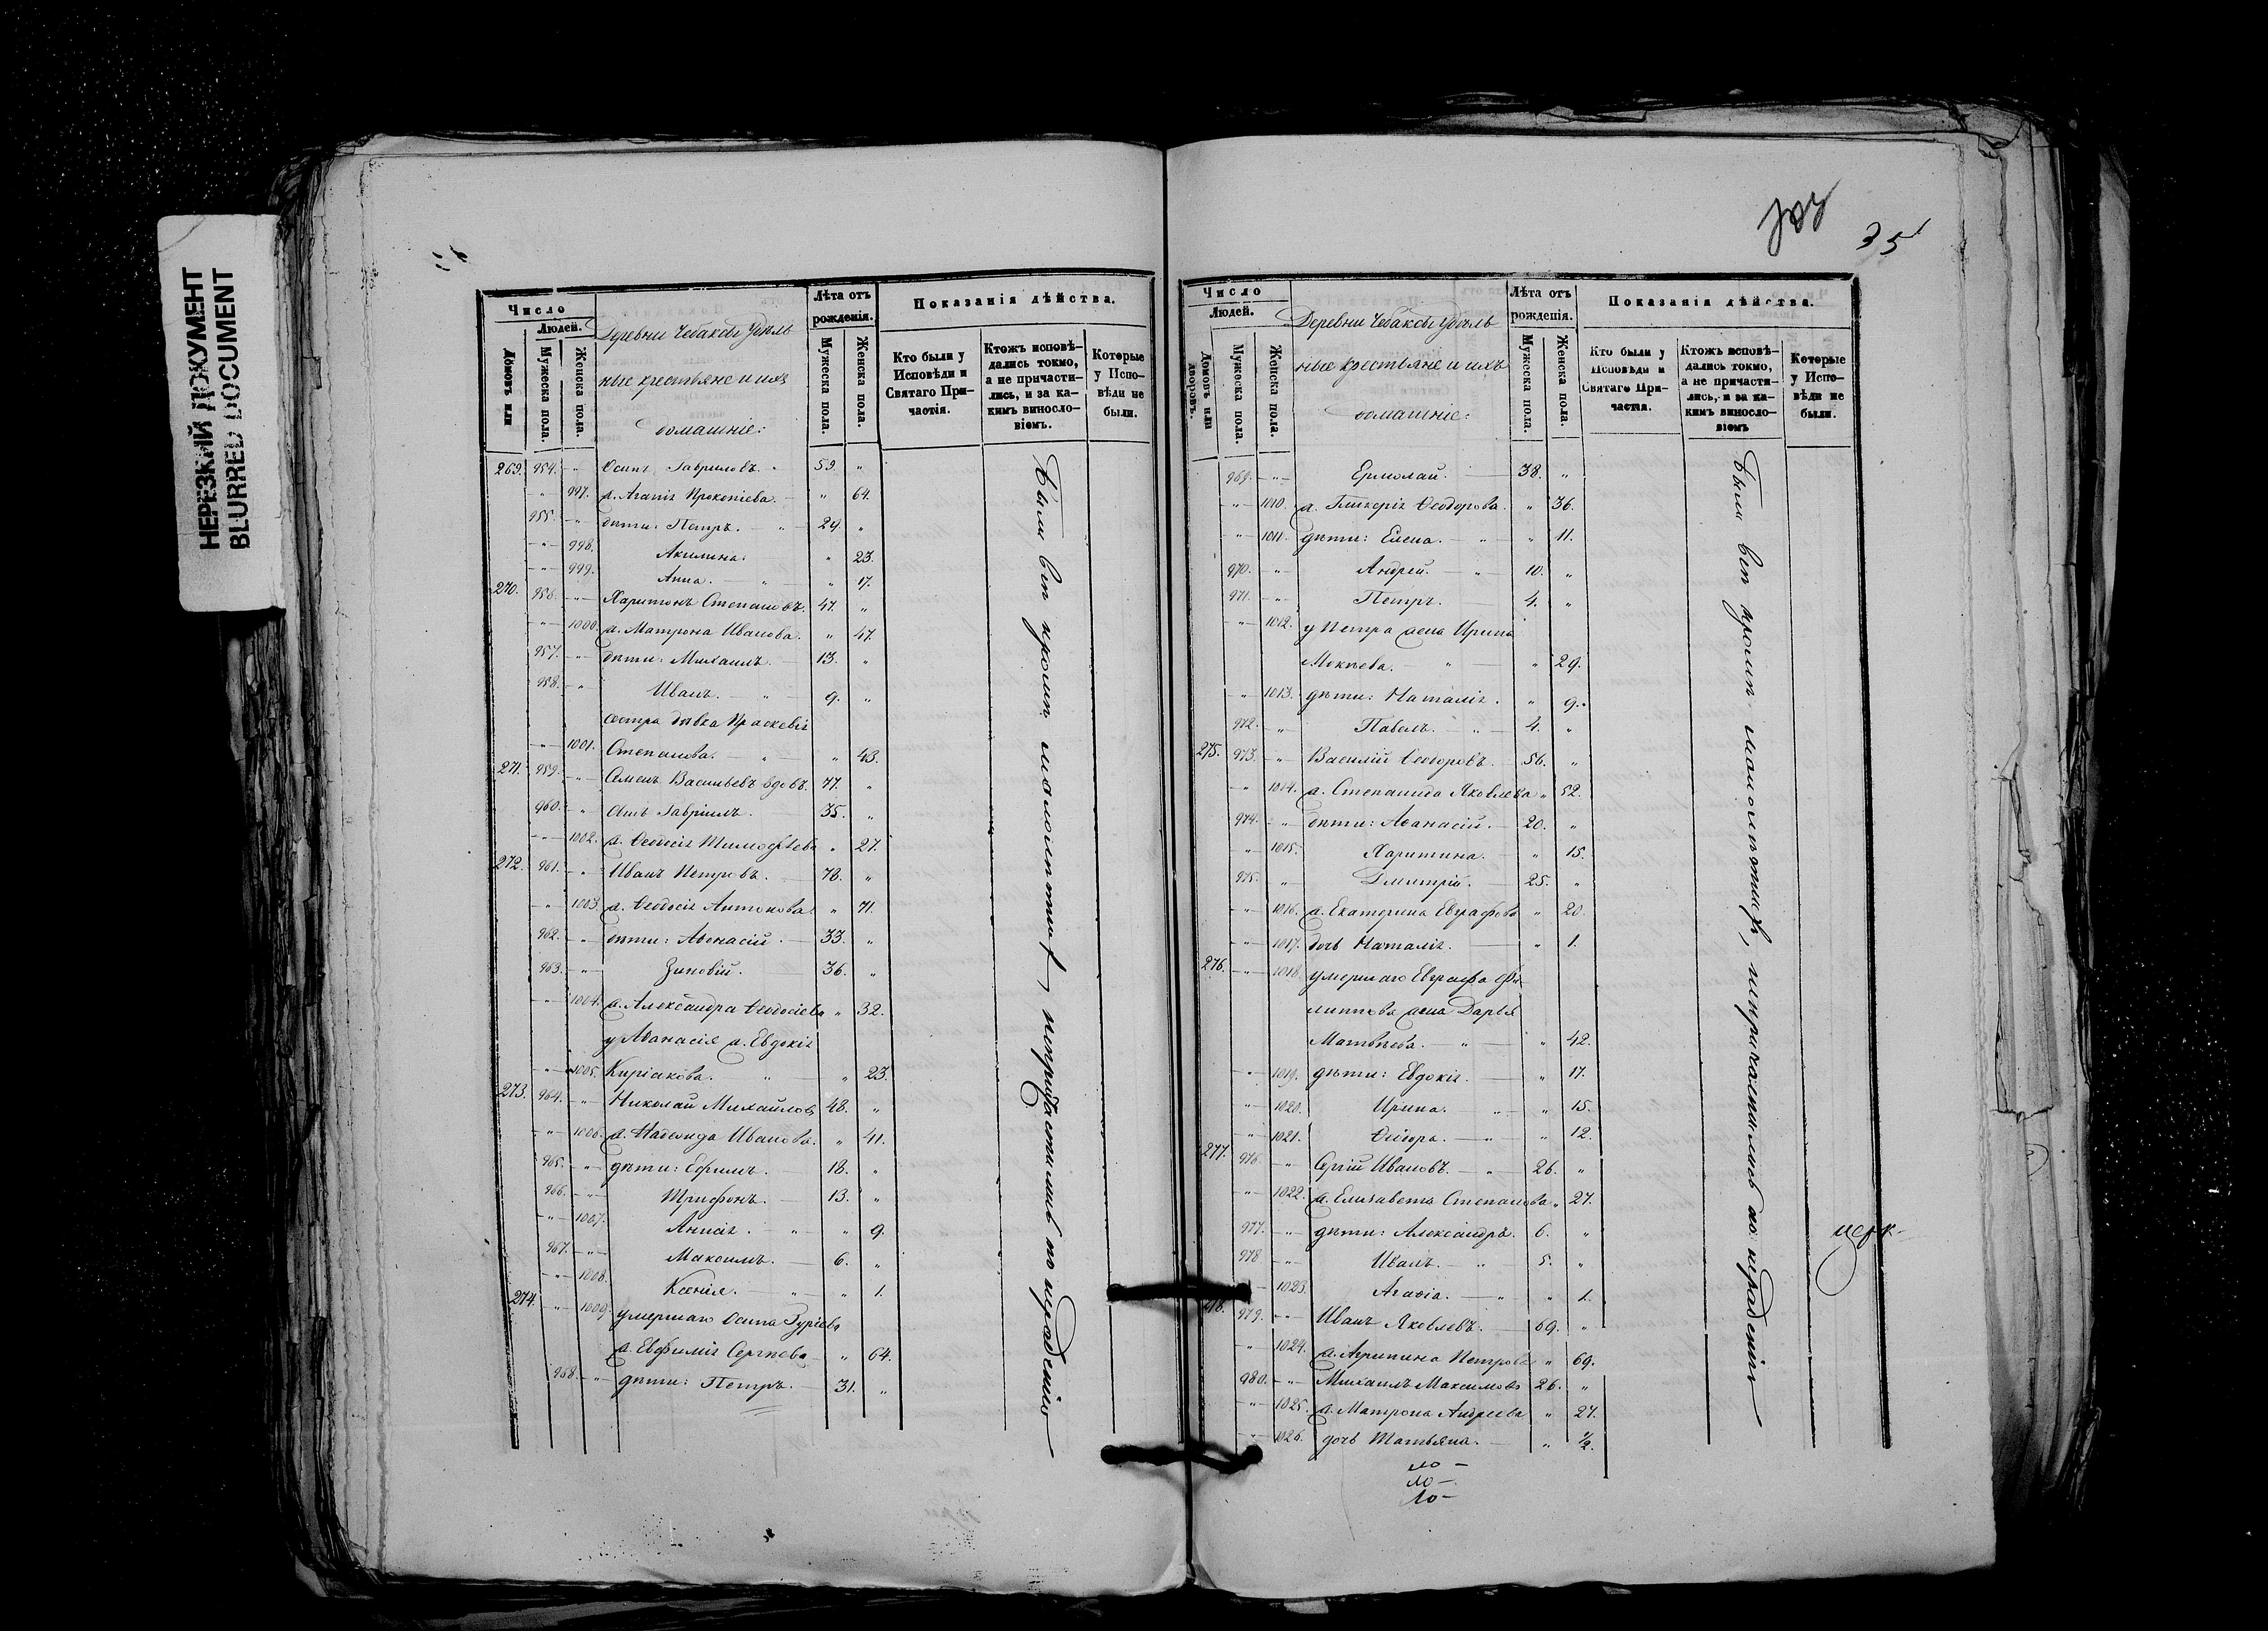 НЕРЕЗКИЙ ДОКУМЕНТ
BLURRED DOCUMENT
35
Число
Людей.
Домовъ или
Мужеска пола.
Женска пола.
Деревни Чебаксы Удѣль
ные крестьяне и ихъ
домашніе:
Лѣта отъ
рожденія.
Мужеска пола.
Женска пола.
Показанія дѣйства.
Кто были у
Исповѣди и
Святаго При-
частія.
Ктожъ исповѣ-
дались токмо,
а не причасти-
лись, и за ка-
кимъ винословіемъ.
Которые
у Испо-
вѣди не
были.
269. 954. -"- Осипъ Гавриловъ. 59. "
-"- 997. ж. Агапія Прокопіева. " 64.
955. -"- дѣти: Петръ. 24. "
-"- 998. Акилина. " 23.
-"- 999. Анна. " 17.
270. 956. -"- Харитонъ Степановъ. 47. "
-"- 1000. ж. Матрона Иванова. " 47.
957. -"- дѣти: Михаилъ. 13. "
958. -"- Иванъ. 9. "
сестра дѣвка Праскевія
-"- 1001. Степанова. " 43.
271. 959. -"- Семенъ Васильевъ вдовъ. 77. "
960. -"- сынъ Гавріилъ. 35. "
-"- 1002. ж. Ѳеодосія Тимоѳѣева " 27.
272. 961. -"- Иванъ Петровъ. 78. "
-"- 1003. ж. Ѳеодосія Антонова " 71.
962. -"- дѣти: Аѳанасій. 33. "
963. -"- Зиновій. 36. "
-"- 1004. ж. Александра Ѳеодосіева " 32.
у Аѳанасія ж. Евдокія
-"- 1005. Киріакова. " 23.
273. 964. -"- Николай Михайловъ 48. "
-"- 1006. ж. Надежда Иванова. " 41.
965. -"- дѣти: Ефимъ. 18. "
966. -"- Трифонъ. 13. "
-"- 1007. Анисія. " 9.
967. -"- Максимъ. 6. "
-"- 1008. Ксенія. " 1.
274. -"- 1009. умершаго Осипа Гурьева
ж. Евфимія Сергѣева " 64.
968. -"- дѣти: Петръ. 31. "
Были всѣ кромѣ малолѣтныхъ, непричастились по нерадѣнію
Число
Людей.
Домовъ или
дворовъ.
Мужеска пола.
Женска пола.
Деревни Чебаксы Удѣль
ные крестьяне и ихъ
домашніе:
Лѣта отъ
рожденія.
Мужеска пола.
Женска пола.
Показанія дѣйства.
Кто были у
Исповѣди и
Святаго При-
частія.
Ктожъ исповѣ-
дались токмо,
а не причасти-
лись, и за ка-
кимъ винословіемъ
Которые
у Испо-
вѣди не
были.
969. -"- Ермолай. 38. "
-"- 1010. ж. Гликерія Ѳеодорова. " 36.
-"- 1011. дѣти: Елена. " 11.
970. -"- Андрей. 10. "
971. -"- Петръ. 4. "
-"- 1012. у Петра жена Ирина
Мокѣева. " 29.
-"- 1013. дѣти: Наталія. " 9.
972. -"- Павелъ. 4. "
275. 973. -"- Василій Ѳеодоровъ. 56. "
-"- 1014. ж. Степанида Яковлева " 52.
974. -"- дѣти: Аѳанасій. 20. "
-"- 1015. Харитина. " 15.
975. -"- Дмитрій. 25. "
-"- 1016. ж. Екатерина Евграфова " 20.
-"- 1017. дочь Наталія. " 1.
276. -"- 1018. умершаго Евграфа Фи-
липпова жена Дарья
Матвѣева. " 42.
-"- 1019. дѣти: Евдокія. " 17.
-"- 1020. Ирина. " 15.
-"- 1021. Ѳеодора. " 12.
277. 976. -"- Сергій Ивановъ. 26. "
-"- 1022. ж. Елизавета Степанова " 27.
977. -"- дѣти: Александръ. 6. "
978 -"- Иванъ. 5. "
1023. Агафія. " 1.
979. -"- Иванъ Яковлевъ. 69. "
" 1024. ж. Агрипина Петрова " 69.
980. -"- Михаилъ Максимовъ 26. "
-"- 1025. ж. Матрона Андреева " 27.
1026. дочь Татьяна. " ½.
Были всѣ кромѣ малолѣтныхъ, непричастились по нерадѣнію
церк-